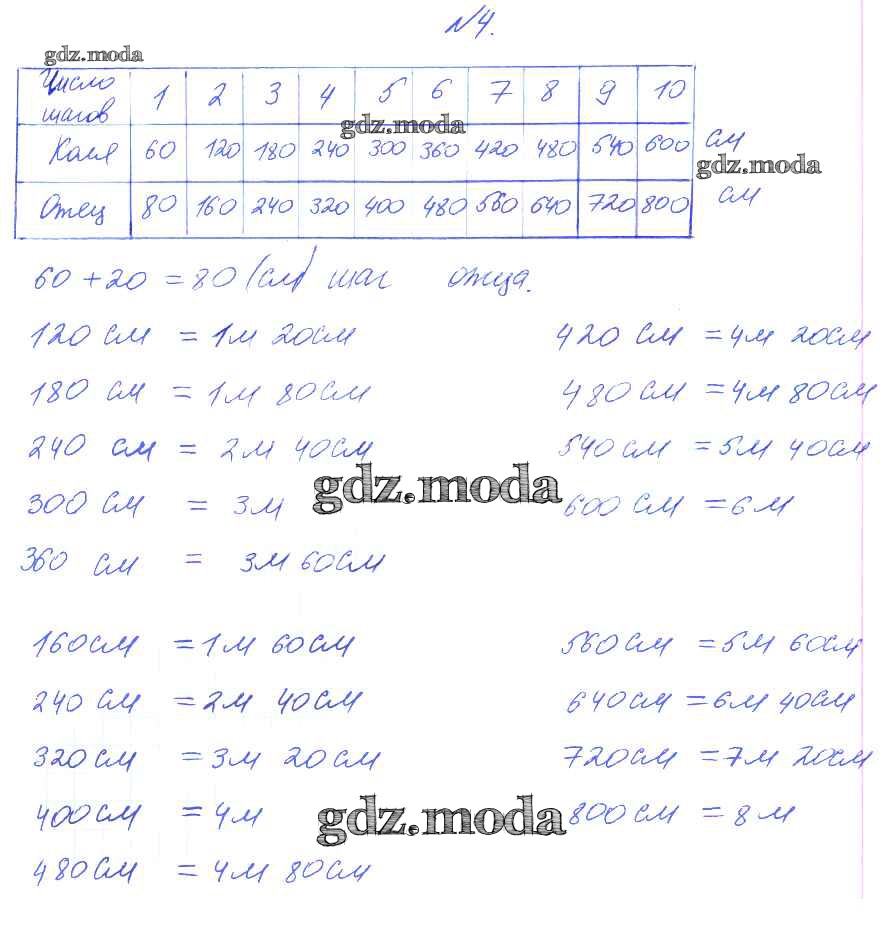 №4.
gdz.moda
Число шагов 1 2 3 4 5 6 7 8 9 10
gdz.moda
Коля 60 120 180 240 300 360 420 480 540 600 см
gdz.moda
Отец 80 160 240 320 400 480 560 640 720 800 см
60 + 20 = 80 (см) шаг отца.
120 см = 1м 20см 420 см = 4м 20см
180 см = 1м 80см 480 см = 4м 80см
240 см = 2м 40см 540 см = 5м 40см
gdz.moda
300 см = 3м 600 см = 6м
360 см = 3м 60см
160см = 1м 60см 560 см = 5м 60см
240 см = 2м 40см 640см = 6м 40см
320 см = 3м 20см 720см = 7м 20см
400 см = 4м 800 см = 8м
gdz.moda
480 см = 4м 80см